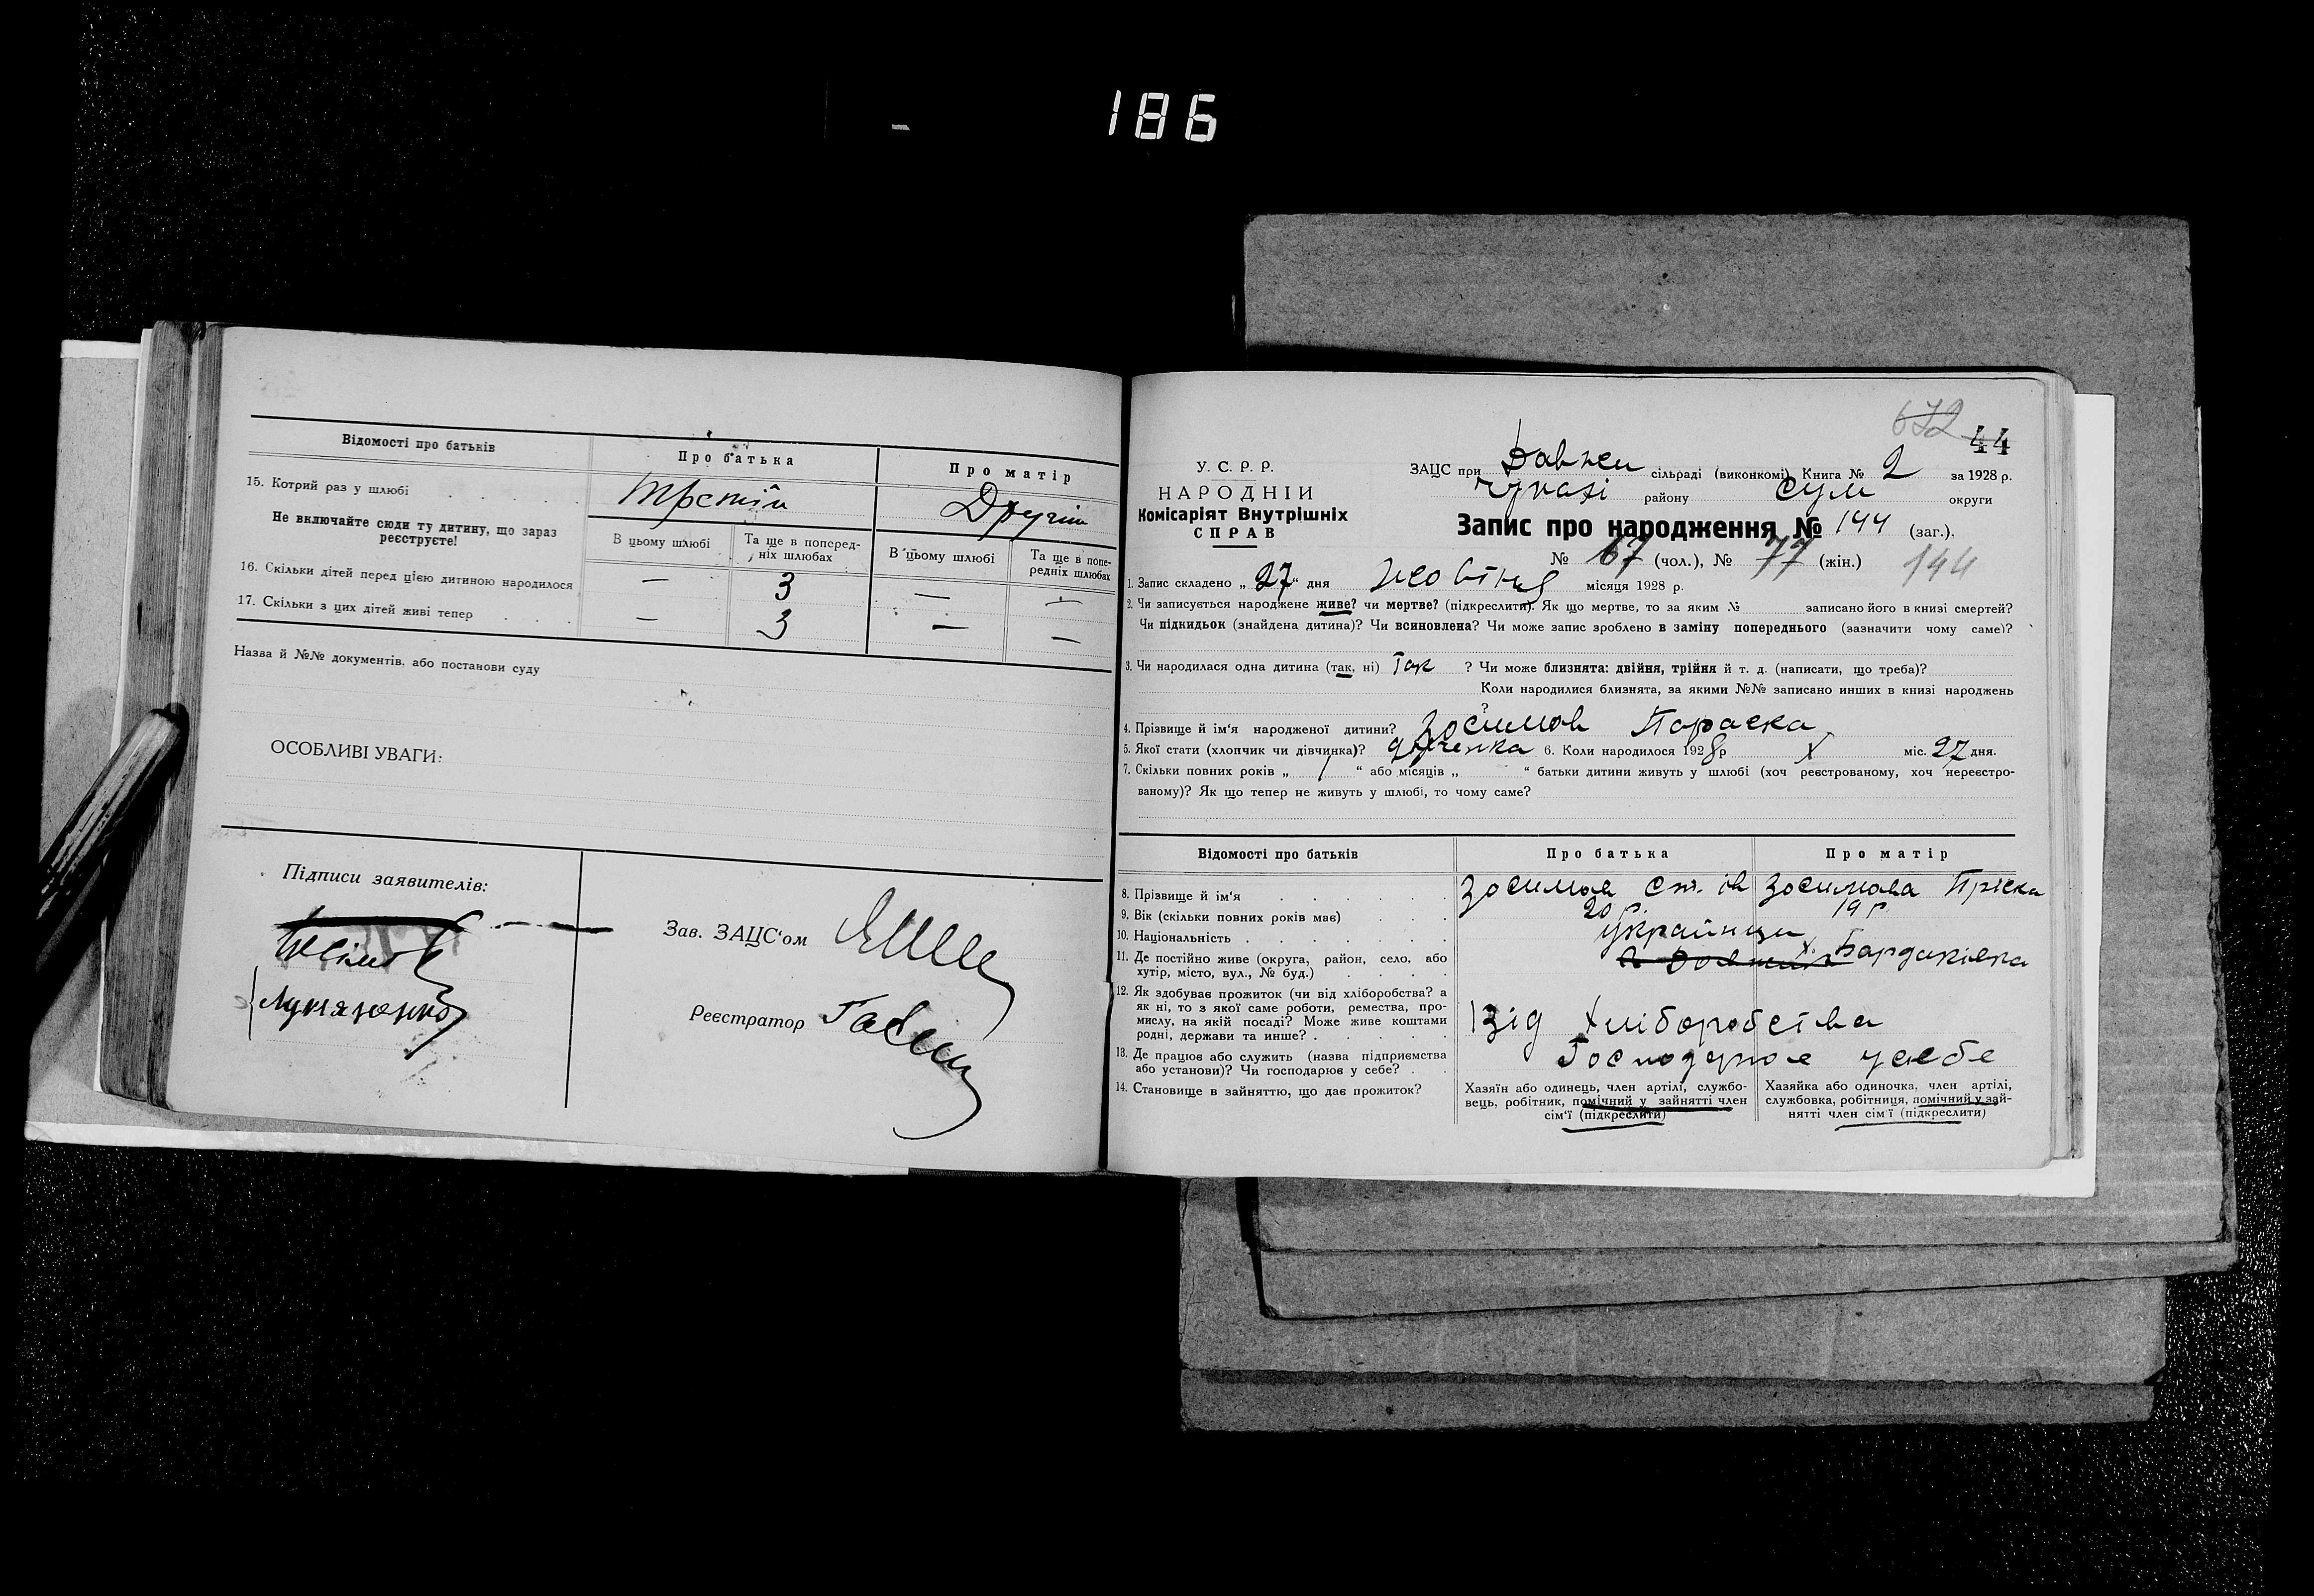 186
Відомості про батьків
Про батька
Про матір
15. Котрий раз у шлюбі
Третій
Другій
Не включайте сюди ту дитину, що зараз
реєструєте!
В цьому шлюбі
Та ще в поперед-
ніх шлюбах
В цьому шлюбі
Та ще в попе-
редніх шлюбах
16. Скільки дітей перед цією дитиною народилося
— 3 — —
17. Скільки з цих дітей живі тепер
— 3 — —
Назва й №№ документів, або постанови суду
ОСОБЛИВІ УВАГИ:
Підписи заявителів:
Зав. ЗАЦС'ом
Реєстратор
672 44
У. С. Р. Р.
НАРОДНІЙ
Комісаріят Внутрішніх
СПРАВ
ЗАЦС при Довжи сільраді (виконкомі) Книга № 2 за 1928 р.
району Сум округи
Запис про народження № 144 (заг.).
№ 67 (чол.), № 77 (жін.) 144
1. Запис складено „27“ дня жовтня місяця 1928 р.
2. Чи записується народжене живе? чи мертве? (підкреслити). Як що мертве, то за яким № записано його в книзі смертей?
Чи підкидьок (знайдена дитина)? Чи всиновлена? Чи може запис зроблено в заміну попереднього (зазначити чому саме)?
3. Чи народилася одна дитина (так, ні) Так ? Чи може близнята: двійня, трійня й т. д. (написати, що треба)?
Коли народилися близнята, за якими №№ записано инших в книзі народжень
?
4. Прізвище й ім'я народженої дитини? Зосимов Параска
5. Якої стати (хлопчик чи дівчинка)? дівченка 6. Коли народилося 1928 р X міс. 27 дня.
7. Скільки повних років „ 1 “ або місяців „ “ батьки дитини живуть у шлюбі (хоч реєстрованому, хоч нереєстро-
ваному)? Як що тепер не живуть у шлюбі, то чому саме?
Відомості про батьків
Про батька
Про матір
8. Прізвище й ім'я
Зосимов
Зосимова Пріска
9. Вік (скільки повних років має)
20 р.
19 р
10. Національність
Українци
11. Де постійно живе (округа, район, село, або
хутір, місто, вул., № буд.)
х. Бардаківка
12. Як здобуває прожиток (чи від хліборобства? а
як ні, то з якої саме роботи, ремества, про-
мислу, на якій посаді? Може живе коштами
родні, держави та инше?
Від Хліборобства
13. Де працює або служить (назва підприємства
або установи)? Чи господарює у себе?
Господарює у себе
14. Становище в зайняттю, що дає прожиток?
Хазяїн або одинець, член артілі, службо-
вець, робітник, помічний у зайнятті член
сім'ї (підкреслити)
Хазяйка або одиночка, член артілі,
службовка, робітниця, помічний у зай-
нятті член сім'ї (підкреслити)